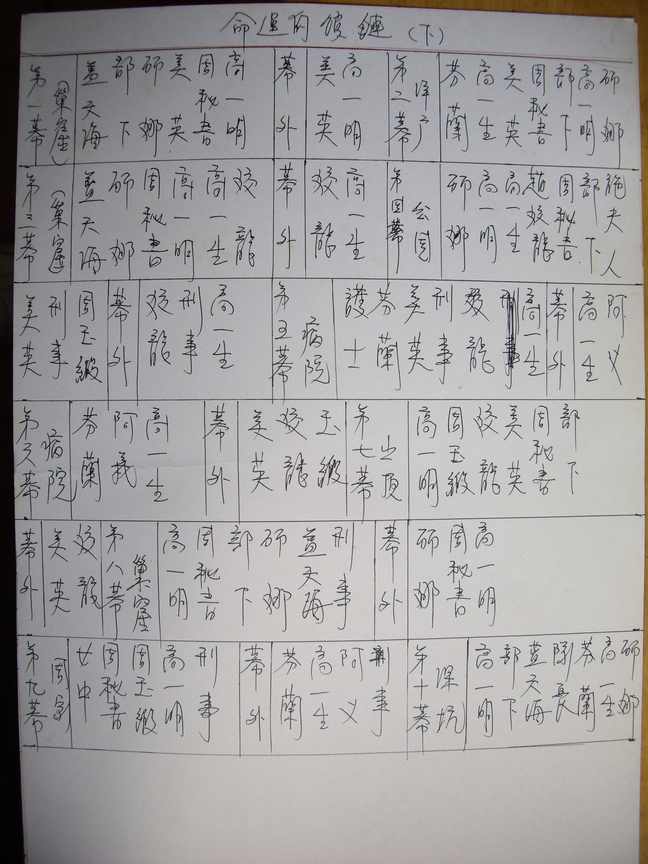 命運的鎖鏈(下)
第一幕 (巢窟) 蓋天海 部下 娜 美英 周秘書 高一明 幕外 美英 高一明 第二幕 洋户 芬蘭 高一生 美英 周秘書 部下 高一明 娜
第三幕 (巢窟) 蓋天海 娜 周秘書 高一明 高一生 龍 幕外 龍 高一生 第四幕 公園 娜 高一明 高一生 趙 龍 周秘書 部下 施夫人
美英 刑事 周玉緞 幕外 龍 刑事 高一生 第五幕 病院 護士 芬蘭 美英 刑事 龍 高一生 幕外 高一生 阿义
第六幕 病院 芬蘭 阿義 高一生 幕外 美英 龍 玉緞 第七幕 山頂 高一明 周玉緞 龍 美英 周秘書 部下
幕外 美英 龍 第八幕 巢窟 高一明 周秘書 部下 娜 蓋天海 刑事 幕外 娜 周秘書 高一明
第九幕 周家 女中 周秘書 周玉緞 高一明 刑事 幕外 芬蘭 高一生 阿义 刑事 第十幕 深坑 高一明 部下 蓋天海 隊長 芬蘭 高一生 娜